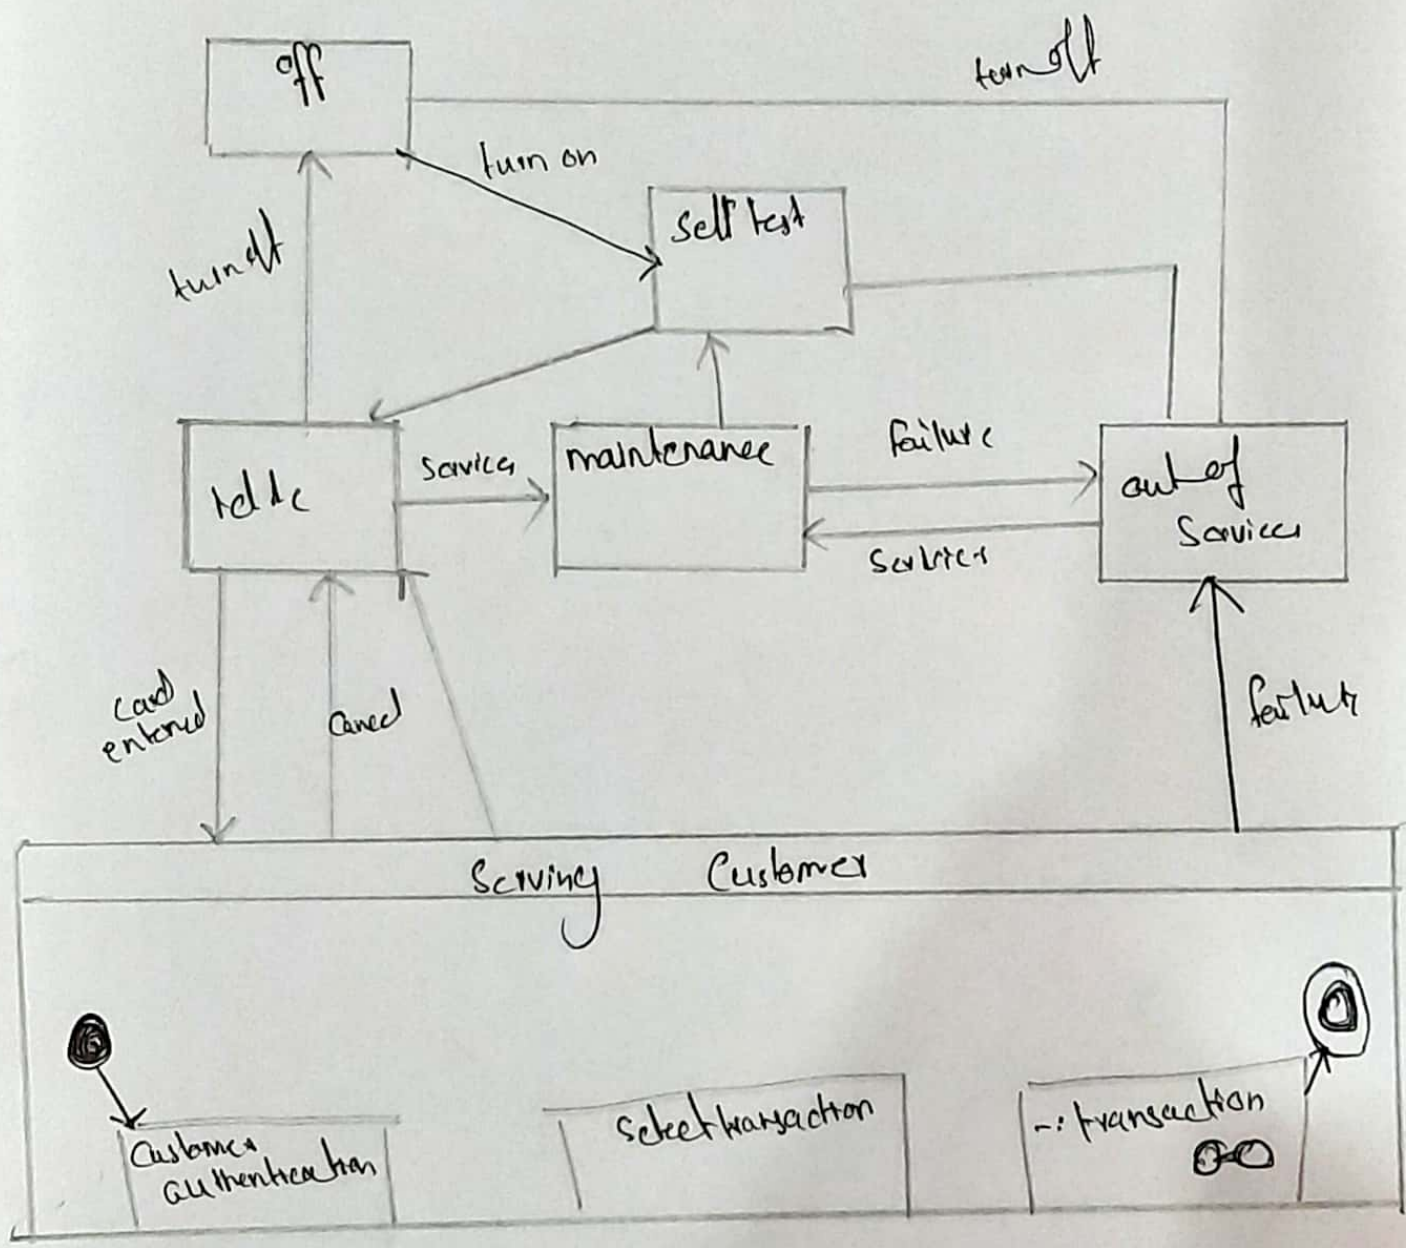 off
turn off
turn on
self test
turn off
idle
service
maintenance
failure
out of
Services
Services
card
entered
Cancel
failure
Serving Customer
Customer
authentication
Select transaction
-: transaction